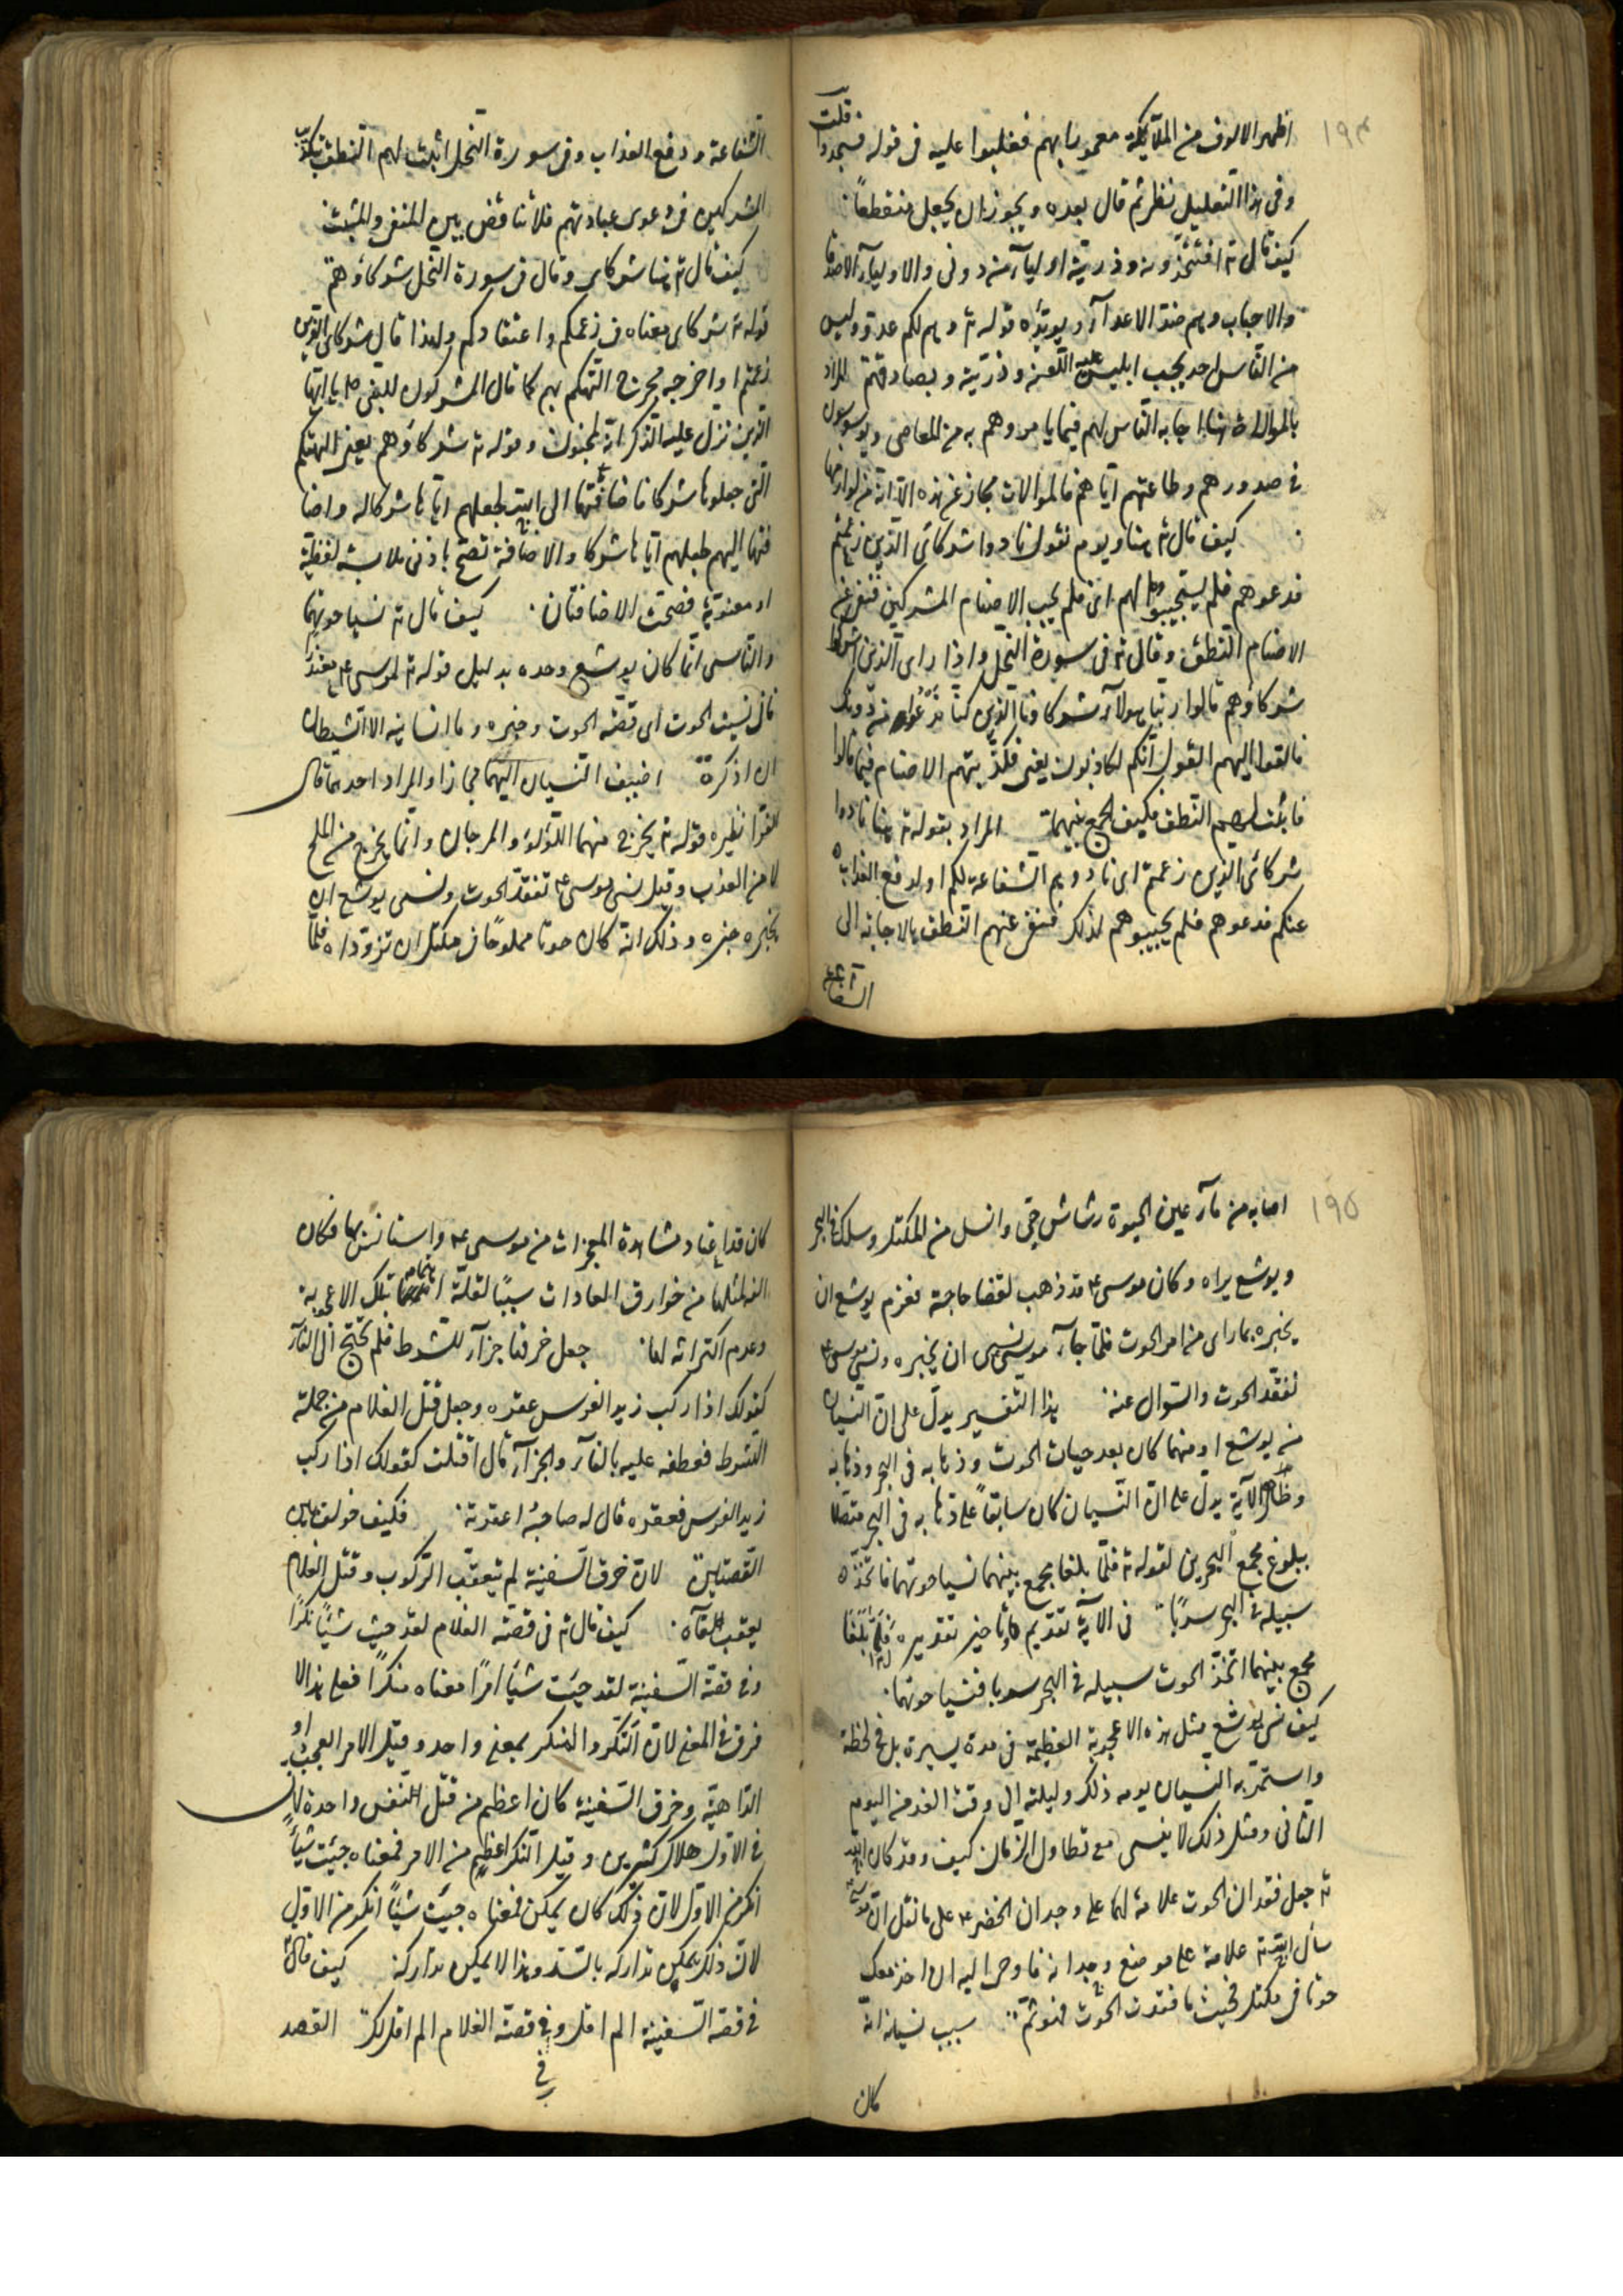 ١٩٤
اظهر الالوف من الملآئكة مغمورا بهم فغلبوا عليه فى قوله فسجدوا قلت
وفى هذا التعليل نظر ثم قال بعده ويجوز ان يجعل منقطعاً
كيف قال تع افتتخذونه وذريته اوليآء من دونى والاوليآء الاصدقا
والاحباب وهم ضد الاعدآء ويؤيده قوله تع وهم لكم عدو وليس
من الناس احد يحب ابليس عليه اللعنه وذريته ويصادقهم المراد
بالموالات هنا اجابة الناس لهم فيما يامروهم به من المعاصى ويوسوسون
فى صدورهم وطاعتهم اياهم فالموالات مجاز عن هذه لانه من لوازمها
كيف قال تع هنا ويوم نقول نادوا شركائى الذين زعمتم
فدعوهم فلم يستجيبوا لهم اى فلم يجب الاصنام المشركين فنفى عن
الاصنام النطق وقال تع فى سورة النحل واذا راى الذين اشركوا
شركاؤهم قالوا ربنا هولآء شركاؤنا الذين كنا ندعوا من دونك
فالقوا اليهم القول انكم لكاذبون يعنى فكذبتهم الاصنام فيما قالوا
فاثبت لهم النطق فكيف الجمع بينهما المراد بقوله تع هنا نادوا
شركائى الذين زعمتم اى نادوهم للشفاعة لكم او لدفع العذاب
عنكم فدعوهم فلم يجيبوهم لذلك فنفى عنهم النطق بالاجابة الى
الشفاعة
الشفاعة ودفع العذاب وفى سورة النحل اثبت لهم النطق بتكذيب
المشركين فى دعوى عبادتهم فلا تناقض بين المنفى والمثبت
كيف قال تع هنا شركاى وقال فى سورة النحل شركاؤهم
قوله تع شركاى معناه فى زعمكم واعتقادكم ولهذا قال شركاى الذين
زعمتم او اخرجه مخرج التهكم بهم كما قال المشركون للنبى ص يا ايها
الذى نزل عليه الذكر انك لمجنون وقوله تع شركاؤهم يعنى الهتهم
التى جعلوها شركا فاضافتها الى الله لجعلهم اياها شركا له واضا
فتها اليهم لجعلهم اياها شركا والاضافة تصح بادنى ملابسة لفظية
او معنوية فصحت الاضافتان كيف قال تع نسيا حوتهما
والناسى انما كان يوشع وحده بدليل قوله تع لموسى ع معتذرا
فانى نسيت الحوت اى قصة الحوت وخبره وما انسانيه الا الشيطان
ان اذكره اضيف النسيان اليهما مجازا والمراد احدهما قال
الفرا نظيره قوله تع يخرج منهما اللؤلؤ والمرجان وانما يخرج من الملح
لا من العذب وقيل نسى موسى ع تفقد الحوت ونسى يوشع ان
يخبره خبره وذلك انه كان حوتا مملوحًا فى مكتل ان تزوداه فلما
١٩٥
اصابه من مآء عين الحيوة رشاش حيى وانسل من المكتل وسلك فى البحر
ويوشع يراه وكان موسى ع قد ذهب لقضا حاجة فعزم يوشع ان
يخبره بما راى من امر الحوت فلما جآء موسى نسى ان يخبره ونسى موسى ع
تفقد الحوت والسوال عنه هذا التفسير يدل على ان النسيان
من يوشع او منهما كان بعد حيات الحوت وذهابه فى البحر وذهابه
وظاهر الآية يدل على ان النسيان كان سابقاً على ذهابه فى البحر متصلا
ببلوغ مجمع البحرين لقوله تع فلما بلغا مجمع بينهما نسيا حوتهما فاتخذ
سبيله فى البحر سربًا فى الآية تقديم وتاخير تقديره فلما بلغا
مجمع بينهما اتخذ الحوت سبيله فى البحر سربا فنسيا حوتهما
كيف نسى يوشع مثل هذه الاعجوبة العظيمة فى مدة يسيرة بل فى لحظة
واستمر به النسيان يومه ذلك وليلته الى وقت الغد من اليوم
الثانى ومثل ذلك لا ينسى مع تطاول الزمان كيف وقد كان الله
تع جعل فقدان الحوت علامة لهما على وجدان الخضر ع على ما نقل ان موسى
سأل الله تع علامة على موضع وجدانه فاوحى اليه ان اخذ معك
حوتا فى مكتل فحيث ما فقدت الحوت فهو ثم سبب نسيانه انه
كان
كان قد اعتاد مشاهدة المعجزات من موسى ع واستانس بها فكان
الفه لمثلها من خوارق العادات سببًا لقلة اهتمامه بتلك الاعجوبة
وعدم اكتراثه لها جعل خرقها جزآء للشرط فلم تحتج الى الفآء
كقولك اذا ركب زيد الفرس عقره وجعل قتل الغلام من جملة
الشرط فعطفه عليه بالفآء والجزآء قال اقتلت كقولك اذا ركب
زيد الفرس فعقره قال له صاحبه اعقرته فكيف خولف بين
القصتين لان خرق السفينة لم يتعقب الركوب وقتل الغلام
يعقب لقآه كيف قال تع فى قصة الغلام لقد جيت شيًا نكرًا
وفى قصة السفينة لقد جيت شيًا امرًا معناه منكرًا فعلى هذا لا
فرق فى المعنى لان النكر والمنكر بمعنى واحد وقيل الامر العجب او
الداهية وخرق السفينة كان اعظم من قتل النفس واحدة لان
فى الاول هلاك كثيرين وقيل النكر اعظم من الامر فمعناه جيت شيأ
انكر من الاول لان ذلك كان يمكن فمعناه جيت شيأ انكر من الاول
لان ذلك يمكن تداركه بالسد وهذا لا يمكن تداركه كيف قال تع
فى قصة السفينة الم اقل وفى قصة الغلام الم اقل لك القصد
فى